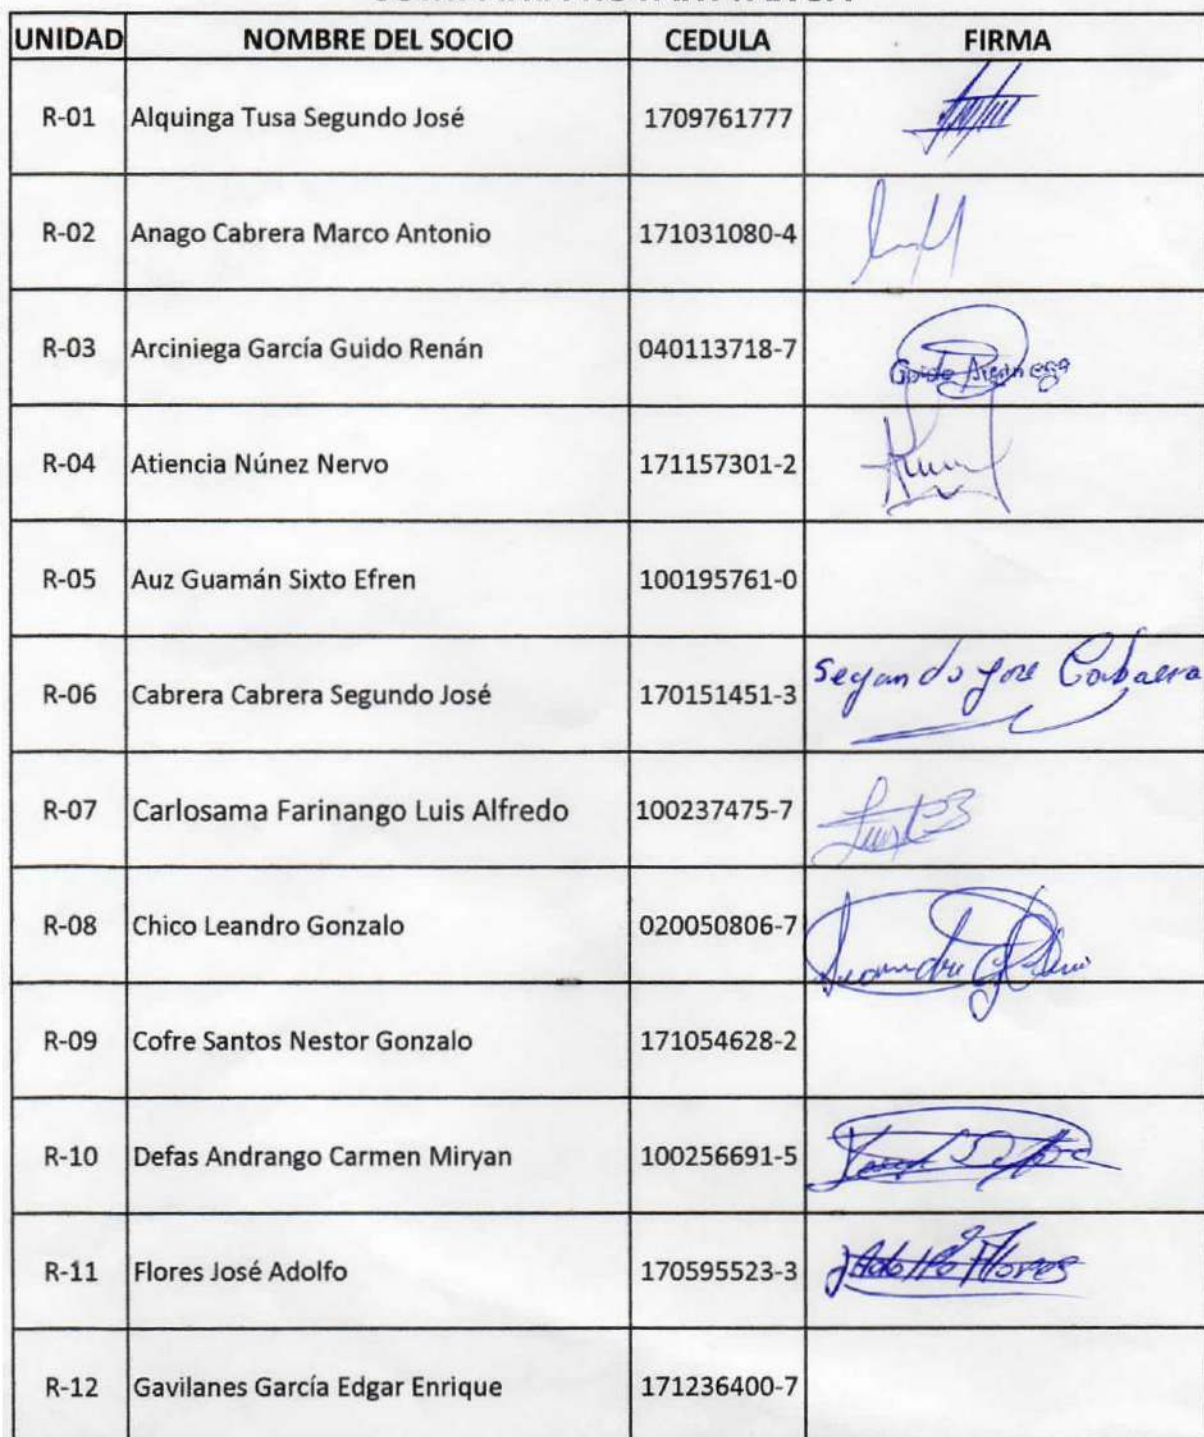 UNIDAD NOMBRE DEL SOCIO CEDULA FIRMA
R-01 Alquinga Tusa Segundo José 1709761777
R-02 Anago Cabrera Marco Antonio 171031080-4
R-03 Arciniega García Guido Renán 040113718-7 Guido Arciniega
R-04 Atiencia Núnez Nervo 171157301-2
R-05 Auz Guamán Sixto Efren 100195761-0
R-06 Cabrera Cabrera Segundo José 170151451-3 Segundo Jose
R-07 Carlosama Farinango Luis Alfredo 100237475-7
R-08 Chico Leandro Gonzalo 020050806-7
R-09 Cofre Santos Nestor Gonzalo 171054628-2
R-10 Defas Andrango Carmen Miryan 100256691-5
R-11 Flores José Adolfo 170595523-3 Adolfo Flores
R-12 Gavilanes García Edgar Enrique 171236400-7